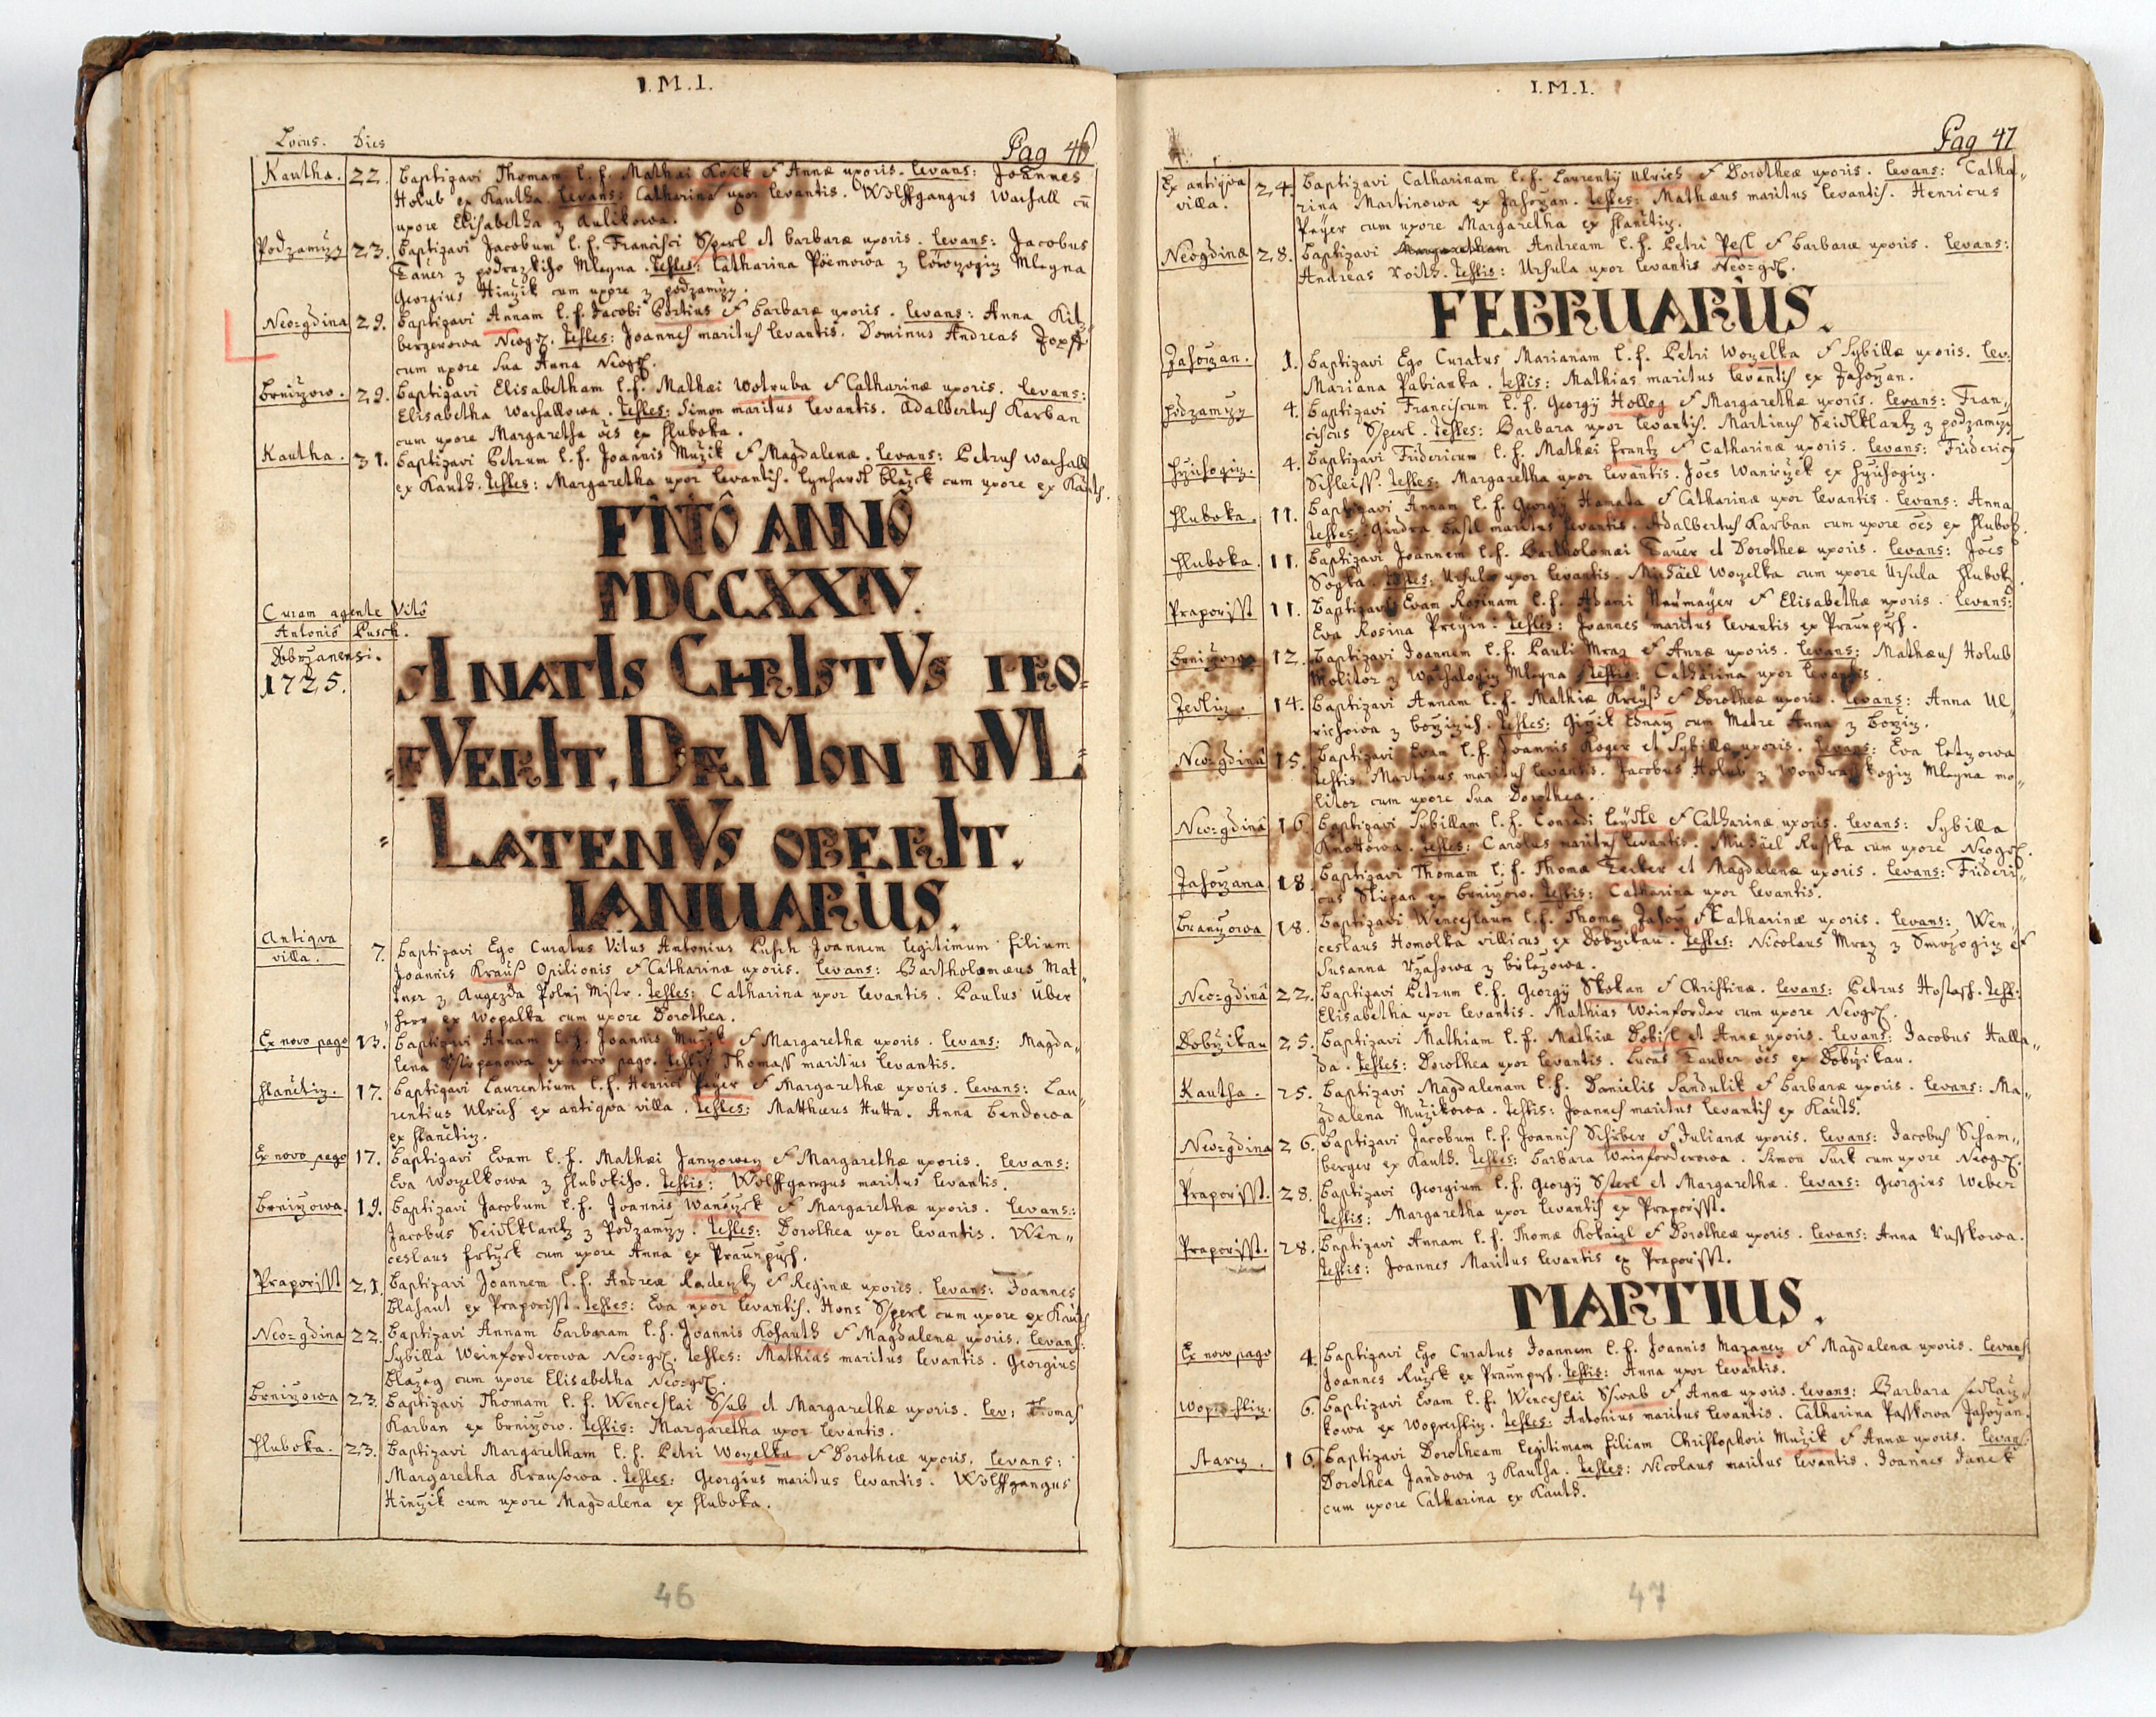 I.M.I.
Locus. Dies Pag 46
Kautha. 22. Baptizavi Thomam l.f. Mathaei Kosik et Annæ uxoris. Levans: Joannes
Holub ex Kautha. Levans: Catharina uxor levantis. Wolffgangus Wachall cū
uxore Elisabetha z Aulikowa.
Podzamczy 23. Baptizavi Jacobum l.f. Francisci Sperl et Barbaræ uxoris. Levans: Jacobus
Tauer z podrazkiho Mleyna. Testes: Catharina Pöemowa z Mleyna
Georgius Hinzik cum uxore z podzamczy.
Neo=gdina 29. Baptizavi Annam l.f. Jacobi Portius et Barbaræ uxoris. Levans: Anna Kit
bergerowa Neogd. Testes: Joannes maritus levantis. Dominus Andreas
cum uxore sua Anna Neogd.
Brnizow. 29. Baptizavi Elisabetham l.f. Mathæi Wotruba et Catharinæ uxoris. Levans:
Elisabetha Wachallowa. Testes: Simon maritus levantis. Adalbertus Karban
cum uxore Margaretha oēs ex Hluboka.
Kautha. 31. Baptizavi Petrum l.f. Joannis Muzik et Magdalenæ. Levans: Petrus Wachall
ex Kauth. Testes: Margaretha uxor levantis. Lynhardt Blazek cum uxore ex Kauth.
FINITÔ ANNÔ
MDCCXXIV.
Curam agente Vitô
Antoniô Pusch.
Dobrzanensi.
1725.
sI natIs ChrIstVs pro=
=fVerIt, DæMon nVL=
=LatenVs oberIt.
IANUARIUS.
Antiqva
villa. 7. Baptizavi Ego Curatus Vitus Antonius Pusch Joannem legitimum filium
Joannis Kraus Opilionis et Catharinæ uxoris. Levans: Bartholomæus Mat
z Augezda Polnj Mistr. Testes: Catharina uxor levantis. Paulus Uber
herr ex Wopalka cum uxore Dorothea.
Ex novo pago 13. Baptizavi Annam l.f. Joannis Muzik et Margarethæ uxoris. Levans: Magda„
lena Stiepanowa ex novo pago. Testis Thomass maritus levantis.
Hanctiz. 17. Baptizavi Laurentium l.f. Henrici Peyer et Margarethæ uxoris. Levans: Lau„
rentius Ulrich ex antiqva villa. Testes: Matthæus Hutta. Anna Bendowa
ex Hanctiz.
Ex novo pago 17. Baptizavi Evam l.f. Mathæi Janzowez et Margarethæ uxoris. Levans:
Eva Wozelkowa z Hlubokiho. Testis: Wolffgangus maritus levantis.
Brnizowa. 19. Baptizavi Jacobum l.f. Joannis Wanczyck et Margarethæ uxoris. Levans:
Jacobus Seidlklantz z Podzamczy. Testes: Dorothea uxor levantis. Wen„
ceslaus cum uxore Anna ex Praunpusch.
Praporisst 21. Baptizavi Joannem l.f. Andreæ Radenzk et Reginæ uxoris. Levans: Joannes
Blahaut ex Praporisst. Testes: Eva uxor levantis. Hans Sperl cum uxore ex Kauth
Neo=gdina 22. Baptizavi Annam Barbaram l.f. Joannis Kohauth et Magdalenæ uxoris. Levans:
Sybilla Weinforderowa Neo=gd. Testes: Mathias maritus levantis. Georgius
Blazeg cum uxore Elisabetha Neo=gd.
Brnizowa 23. Baptizavi Thomam l.f. Wenceslai Ssub et Margarethæ uxoris. Lev: Thomas
Karban ex Brnizow. Testis: Margaretha uxor levantis.
Hluboka. 23. Baptizavi Margaretham l.f. Petri Wozelka et Dorotheæ uxoris. Levans:
Margaretha Krausowa. Testes: Georgius maritus levantis. Wolffgangus
Hinzik cum uxore Magdalena ex Hluboka.
46
I.M.I.
Pag 47
Ex antiqva
villa. 24. Baptizavi Catharinam l.f. Laurentij Ulrich et Dorotheæ uxoris. Levans: Catha„
rina Martinowa ex Jahorzan. Testes: Mathæus maritus levantis. Henricus
Peyer cum uxore Margaretha ex Hanctiz.
Neogdinæ 28. Baptizavi Andream l.f. Petri Pesl et Barbaræ uxoris. Levans:
Andreas Voith. Testis: Ursula uxor levantis Neo=gd.
FEBRUARIUS.
Jahorzan. 1. Baptizavi Ego Curatus Marianam l.f. Petri Wozelka et Sybillæ uxoris. Lev:
Mariana Pabianka. Testis: Mathias maritus levantis ex Jahorzan.
Podzamczy 4. Baptizavi Franciscum l.f. Georgij Holleg et Margarethæ uxoris. Levans: Fran„
ciscus Sperl. Testes: Barbara uxor levantis. Martinus Seidlklantz z podzamczy
4. Baptizavi Fridericum l.f. Mathæi Frantz et Catharinæ uxoris. Levans: Fridericus
Schleiss. Testes: Margaretha uxor levantis. Joēs Wanczyck ex
Hluboka. 11. Baptizavi Annam l.f. Georgij Hanata et Catharinæ uxor levantis. Levans: Anna
Testes: Gindra Basl maritus levantis. Adalbertus Karban cum uxore oēs ex Hlubok.
Hluboka. 11. Baptizavi Joannem l.f. Bartholomæi Tauer et Dorotheæ uxoris. Levans: Joēs
Sogka. Testes: Ursula uxor levantis. Michael Wozelka cum uxore Ursula Hlubok.
Praporisst 11. Baptizavi Evam Rosinam l.f. Adami Neumayer et Elisabethæ uxoris. Levans:
Eva Rosina Preyin. Testes: Joannes maritus levantis ex Praunpusch.
Brnizowa 12. Baptizavi Joannem l.f. Pauli Mraz et Annæ uxoris. Levans: Mathæus Holub
Molitor z Mleyna Testis: Catharina uxor levantis.
Zedliz. 14. Baptizavi Annam l.f. Mathiæ Kreyss et Dorotheæ uxoris. Levans: Anna Ul„
richowa z Testes: Girzik cum Matre Anna z
Neo=gdinâ 15. Baptizavi Evam l.f. Joannis Koger et Sybillæ uxoris. Levans: Eva
Testis Martinus maritus levantis. Jacobus Holub z Mleyna mo„
litor cum uxore sua Dorothea.
Neo=gdinâ 16. Baptizavi Sybillam l.f. Conradi et Catharinæ uxoris. Levans: Sybilla
Knottowa. Testes: Carolus maritus levantis. Michael Russka cum uxore Neogd.
Jahorzana 18. Baptizavi Thomam l.f. Thomæ et Magdalenæ uxoris. Levans: Frideri„
cus Stiepan ex Brnizow. Testis: Catharina uxor levantis.
18. Baptizavi Wenceslaum l.f. Thomæ et Catharinæ uxoris. Levans: Wen„
ceslaus Homolka villicus ex Dobrzikau. Testes: Nicolaus Mraz z et
Susanna z
Neo=gdinâ 22. Baptizavi Petrum l.f. Georgij Skokan et Christinæ. Levans: Petrus Hostasch. Test:
Elisabetha uxor levantis. Mathias Weinforder cum uxore Neogd.
Dobrzikau 25. Baptizavi Mathiam l.f. Mathiæ Dobisl et Annæ uxoris. Levans: Jacobus Halla„
da. Testes: Dorothea uxor levantis. Lucas Tauber oēs ex Dobrzikau.
Kautha. 25. Baptizavi Magdalenam l.f. Danielis Sandulik et Barbaræ uxoris. Levans: Ma„
gdalena Muzikowa. Testis: Joannes maritus levantis ex Kauth.
Neo=gdina 26. Baptizavi Jacobum l.f. Joannis Schiber et Julianæ uxoris. Levans: Jacobus Scham„
berger ex Kauth. Testes: Barbara Weinforderowa. Simon Suck cum uxore Neogd.
Praporisst. 28. Baptizavi Georgium l.f. Georgij Sperl et Margarethæ. Levans: Georgius Weber
Testis: Margaretha uxor levantis ex Praporisst.
Praporisst. 28. Baptizavi Annam l.f. Thomæ Kokaizl et Dorotheæ uxoris. Levans: Anna Russkowa.
Testis: Joannes Maritus levantis ex Praporisst.
MARTIUS.
Ex novo pago 4. Baptizavi Ego Curatus Joannem l.f. Joannis Mazanez et Magdalena uxoris. Levans
Joannes Ruzick ex Praunpusch. Testis: Anna uxor levantis.
6. Baptizavi Evam l.f. Wenceslai Sswab et Annæ uxoris. Levans: Barbara
kowa ex Woprechtiz. Testes: Antonius maritus levantis. Catharina Passkowa Jahorzan.
Stanez. 16. Baptizavi Dorotheam legitimam filiam Christophori Muzik et Annæ uxoris. Levans:
Dorothea Jandowa z Kautha. Testes: Nicolaus maritus levantis. Joannes Janek
cum uxore Catharina ex Kauth.
47